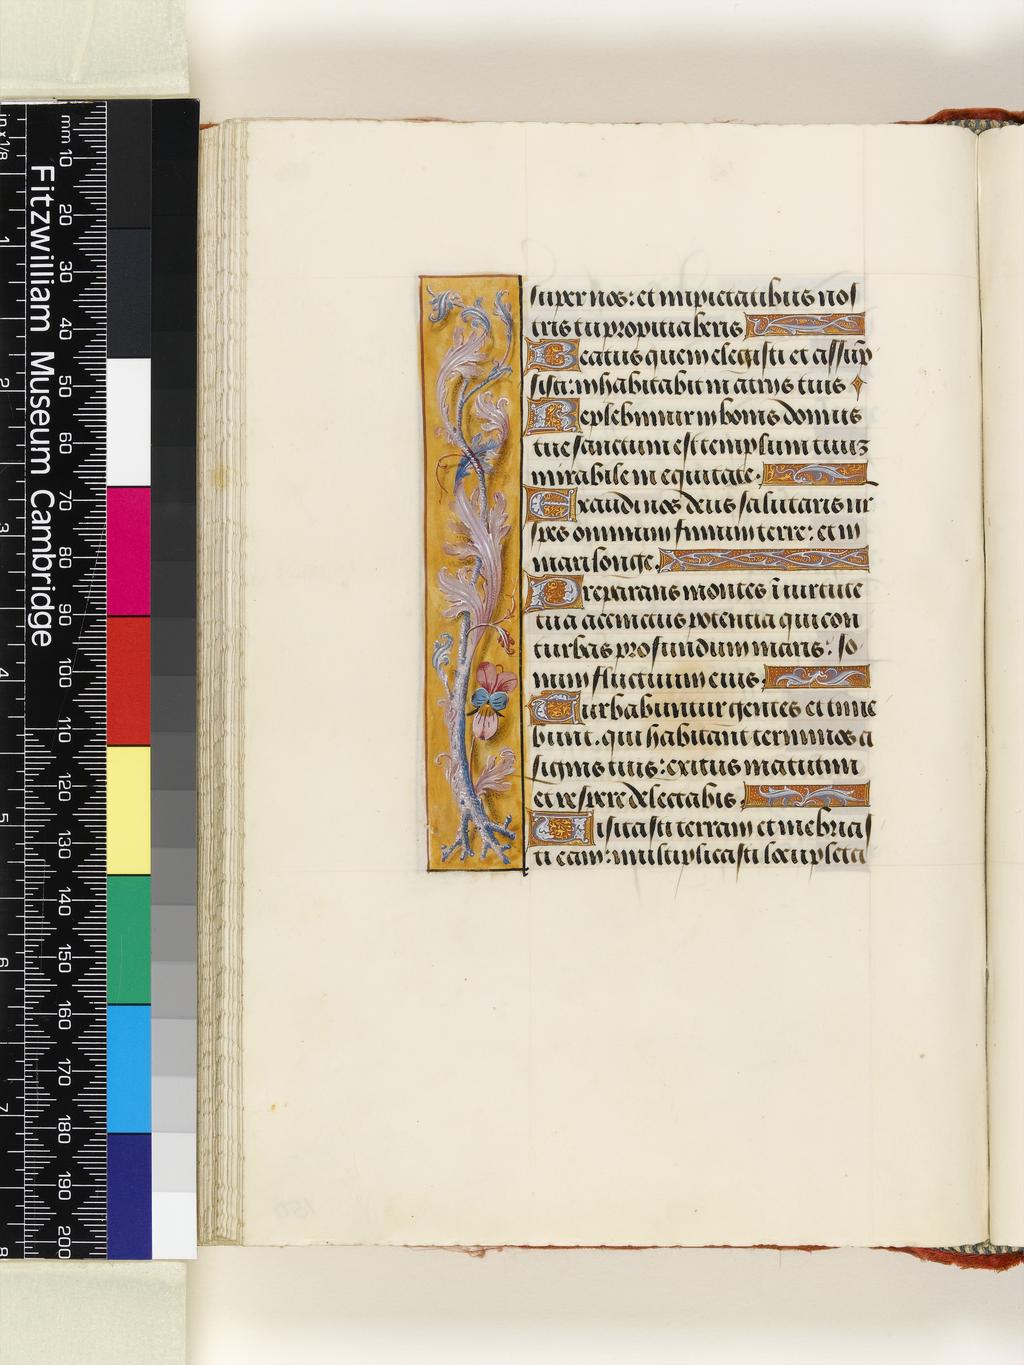 super nos: et impietatibus nos
tris tu propitiaberis
Beatus quem elegisti et assūp
sisti: inhabitabit in atriis tuis
Replebimur in bonis domus
tue sanctum est templum tuuʒ
mirabile in equitate.
Exaudi nos deus salutaris nr
spes omnium finium terre: et in
mari longe.
Preparans montes ī virtute
tua accinctus potentia qui con
turbas profundum maris: so
num fluctuum eius.
Turbabuntur gentes et time
bunt. qui habitant terminos a
signis tuis: exitus matutini
et vespere delectabis.
Visitasti terram et inebrias
ti eam: multiplicasti locupleta
Fitzwilliam Museum Cambridge
mm 10 20 30 40 50 60 70 80 90 100 110 120 130 140 150 160 170 180 190 200
in x 1/8 1 2 3 4 5 6 7 8